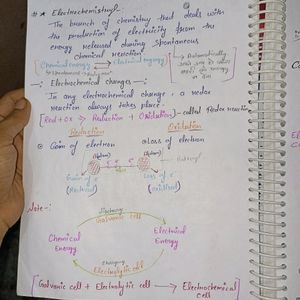 * Electrochemistry :-
The branch of chemistry that deals with
the production of electricity from the
energy released during spontaneous
chemical reaction
Chemical energy → Electrical energy
Electrochemical changes :-
In any electrochemical change, a redox
reaction always takes place.
[Red + Ox => Reduction + Oxidation] - called Redox reaction
Reduction Oxidation
Gain of electron Loss of electron
Gain of e⁻ Loss of e⁻
(Reduced) (oxidised)
Note :-
Galvanic cell
Chemical Energy Electrical Energy
charging
Electrolytic cell
[Galvanic cell + Electrolytic cell → Electrochemical
cell